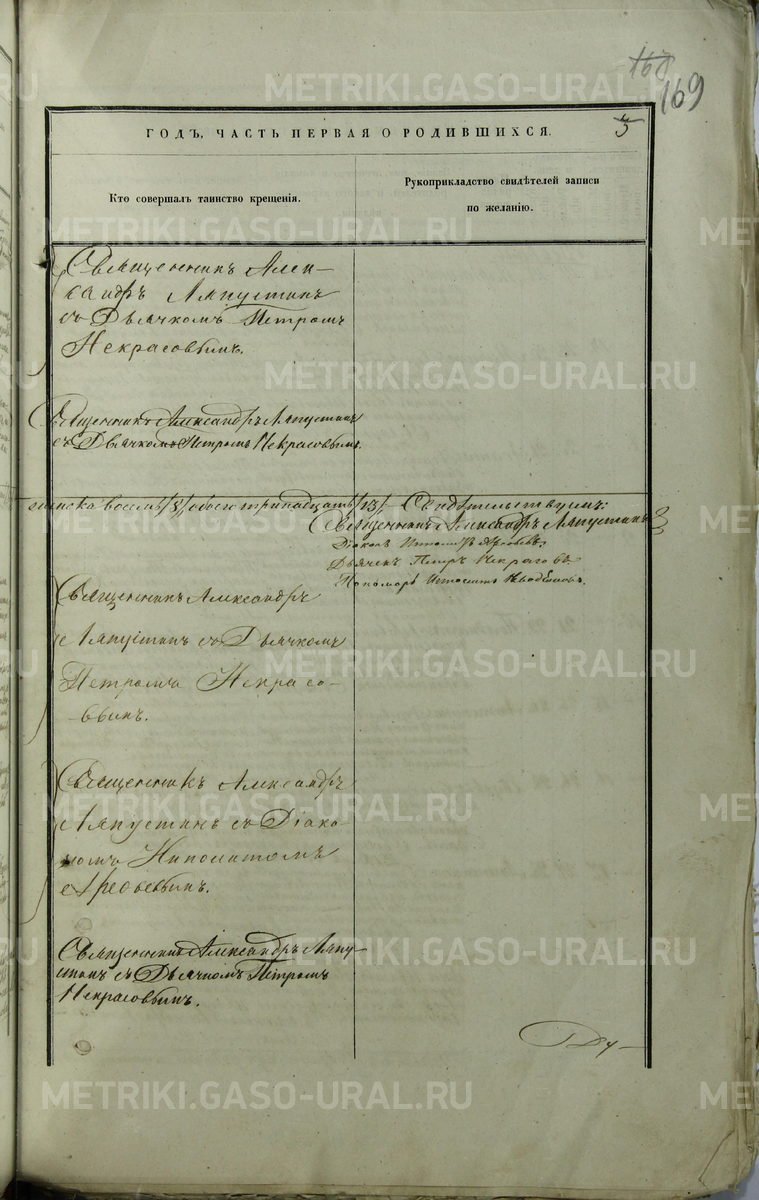 168
169
ГОДЪ, ЧАСТЬ ПЕРВАЯ О РОДИВШИХСЯ.
5
Кто совершалъ таинство крещенія.
Рукоприкладство свидѣтелей записи
по желанію.
Священникъ Алек-
сандръ Ляпустинъ
съ Дьячкомъ Петромъ
Некрасовымъ.
Священникъ Александръ Ляпустинъ
съ Дьячкомъ Петромъ Некрасовымъ.
женска восемь /8/ обоего тринадцать /13/. Свидѣтельствуемъ:
Священникъ Александръ Ляпустинъ
Діаконъ
Дьячекъ Петръ Некрасовъ
Пономарь
Священникъ Александръ
Ляпустинъ съ Дьячкомъ
Петромъ Некрасо-
вымъ.
Священникъ Александръ
Ляпустинъ съ Діако-
номъ Ипполитомъ
Священникъ Александръ Ляпу-
стинъ съ Дьячкомъ Петромъ
Некрасовымъ.
Ду-
METRIKI.GASO-URAL.RU